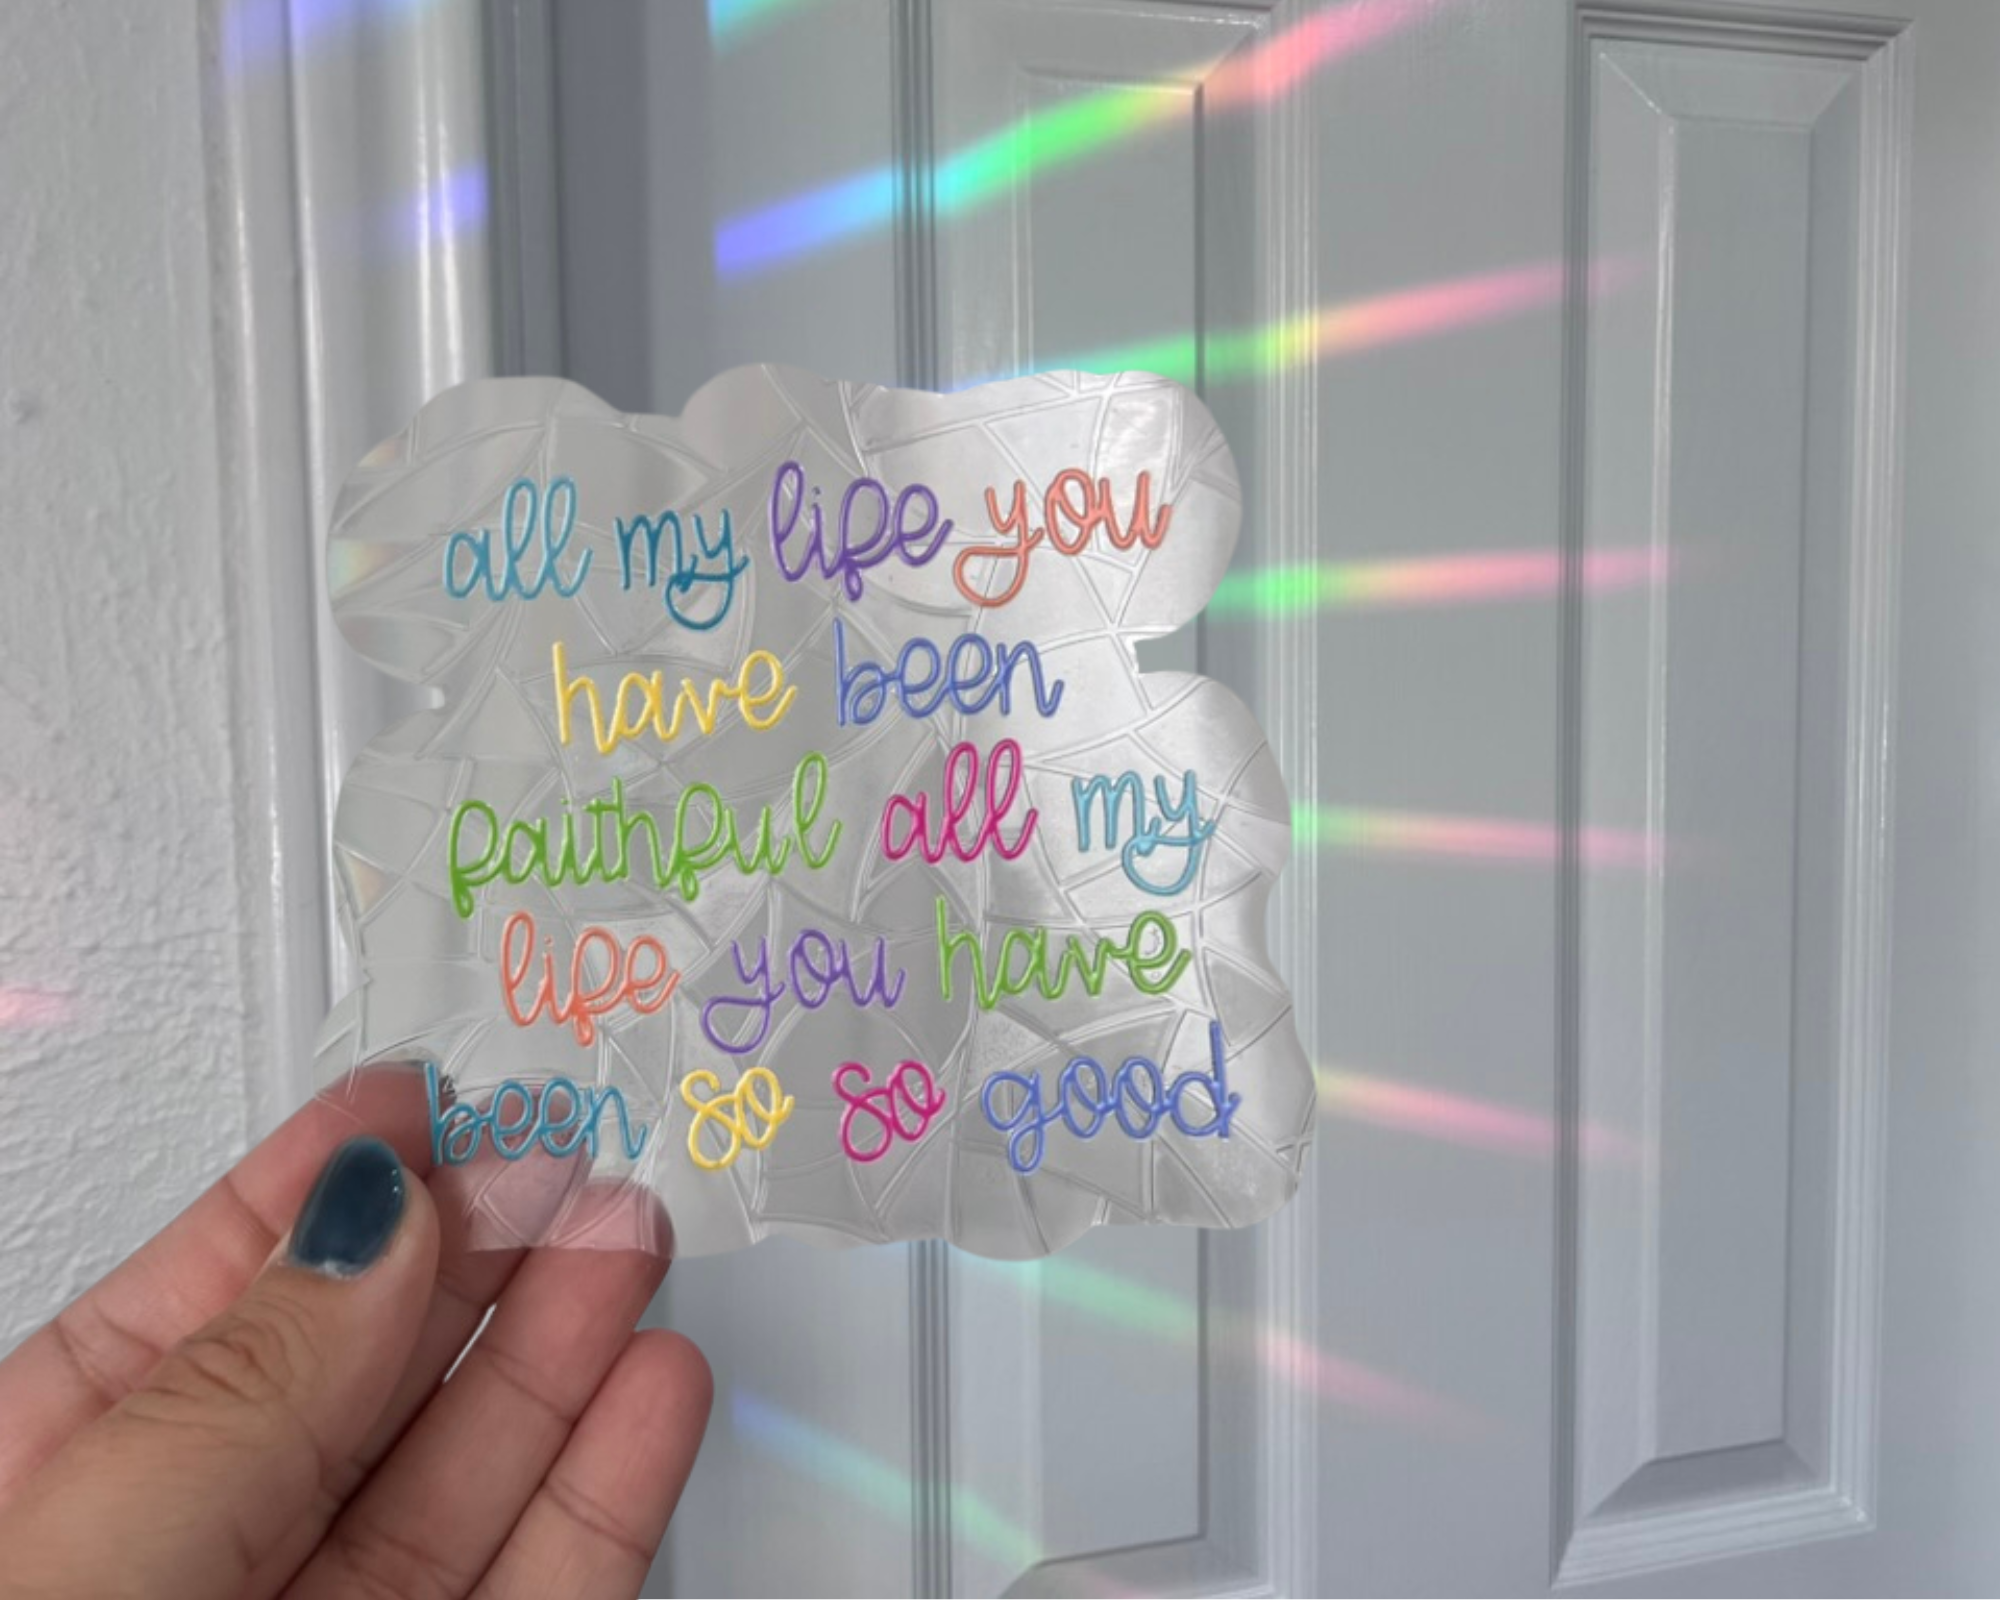 all my life you
have been
faithful all my
life you have
been so so good